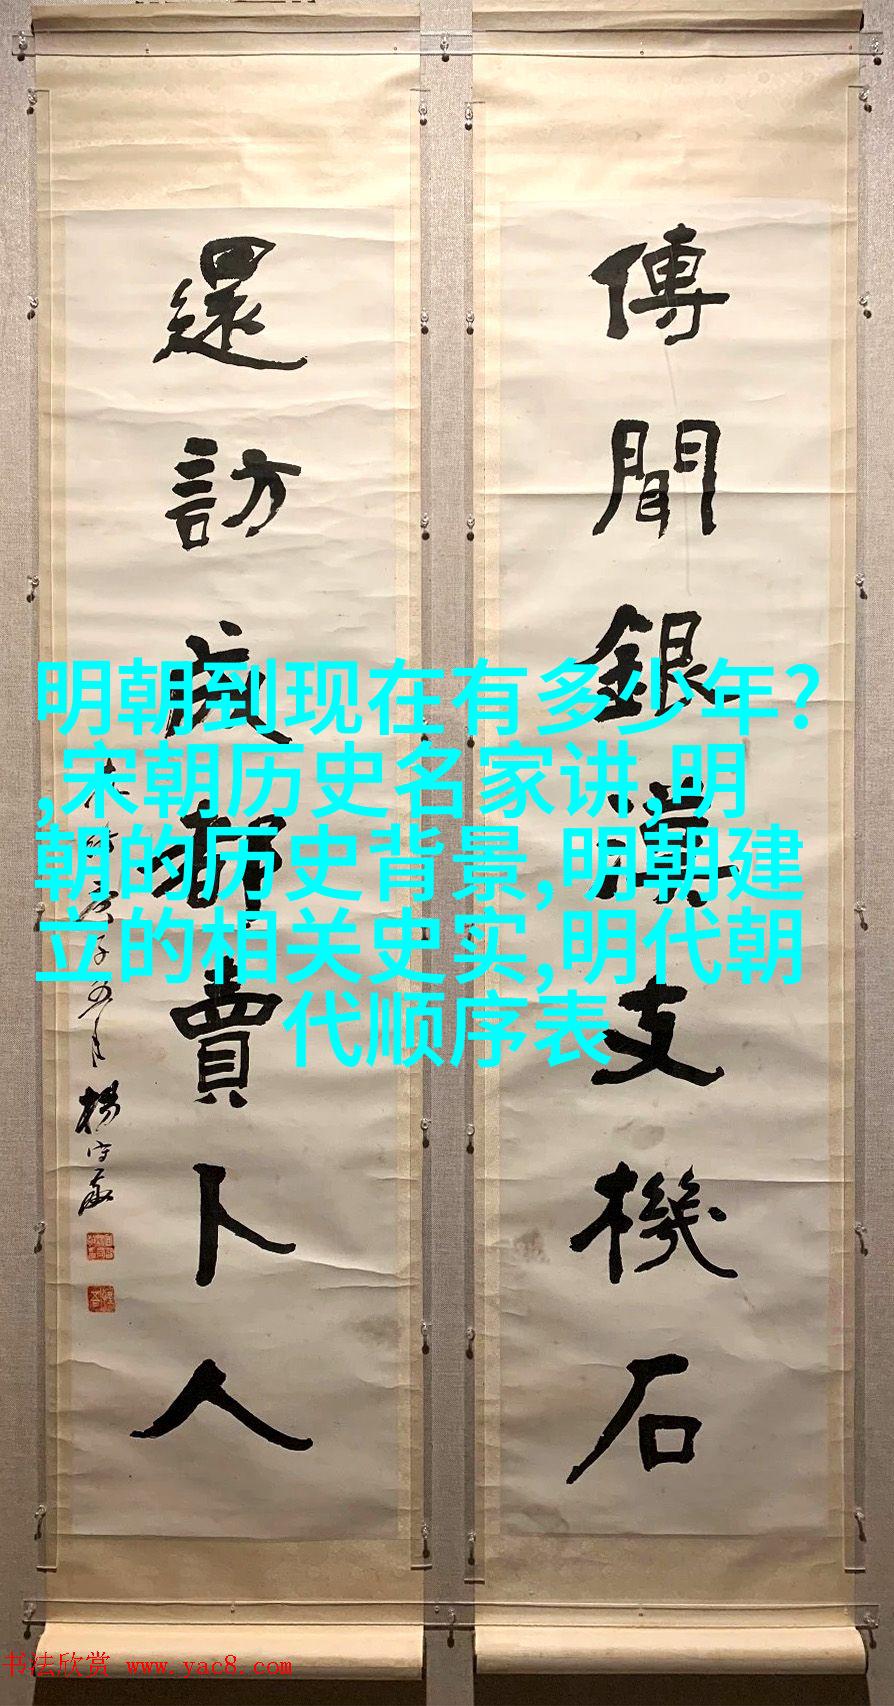 傳聞銀漢支機石
還訪成都賣卜人
庚子五月楊守敬
明朝到现在有多少年?
,宋朝历史名家讲,明
朝的历史背景,明朝建
立的相关史实,明代朝
代顺序表
书法欣赏 www.yac8.com